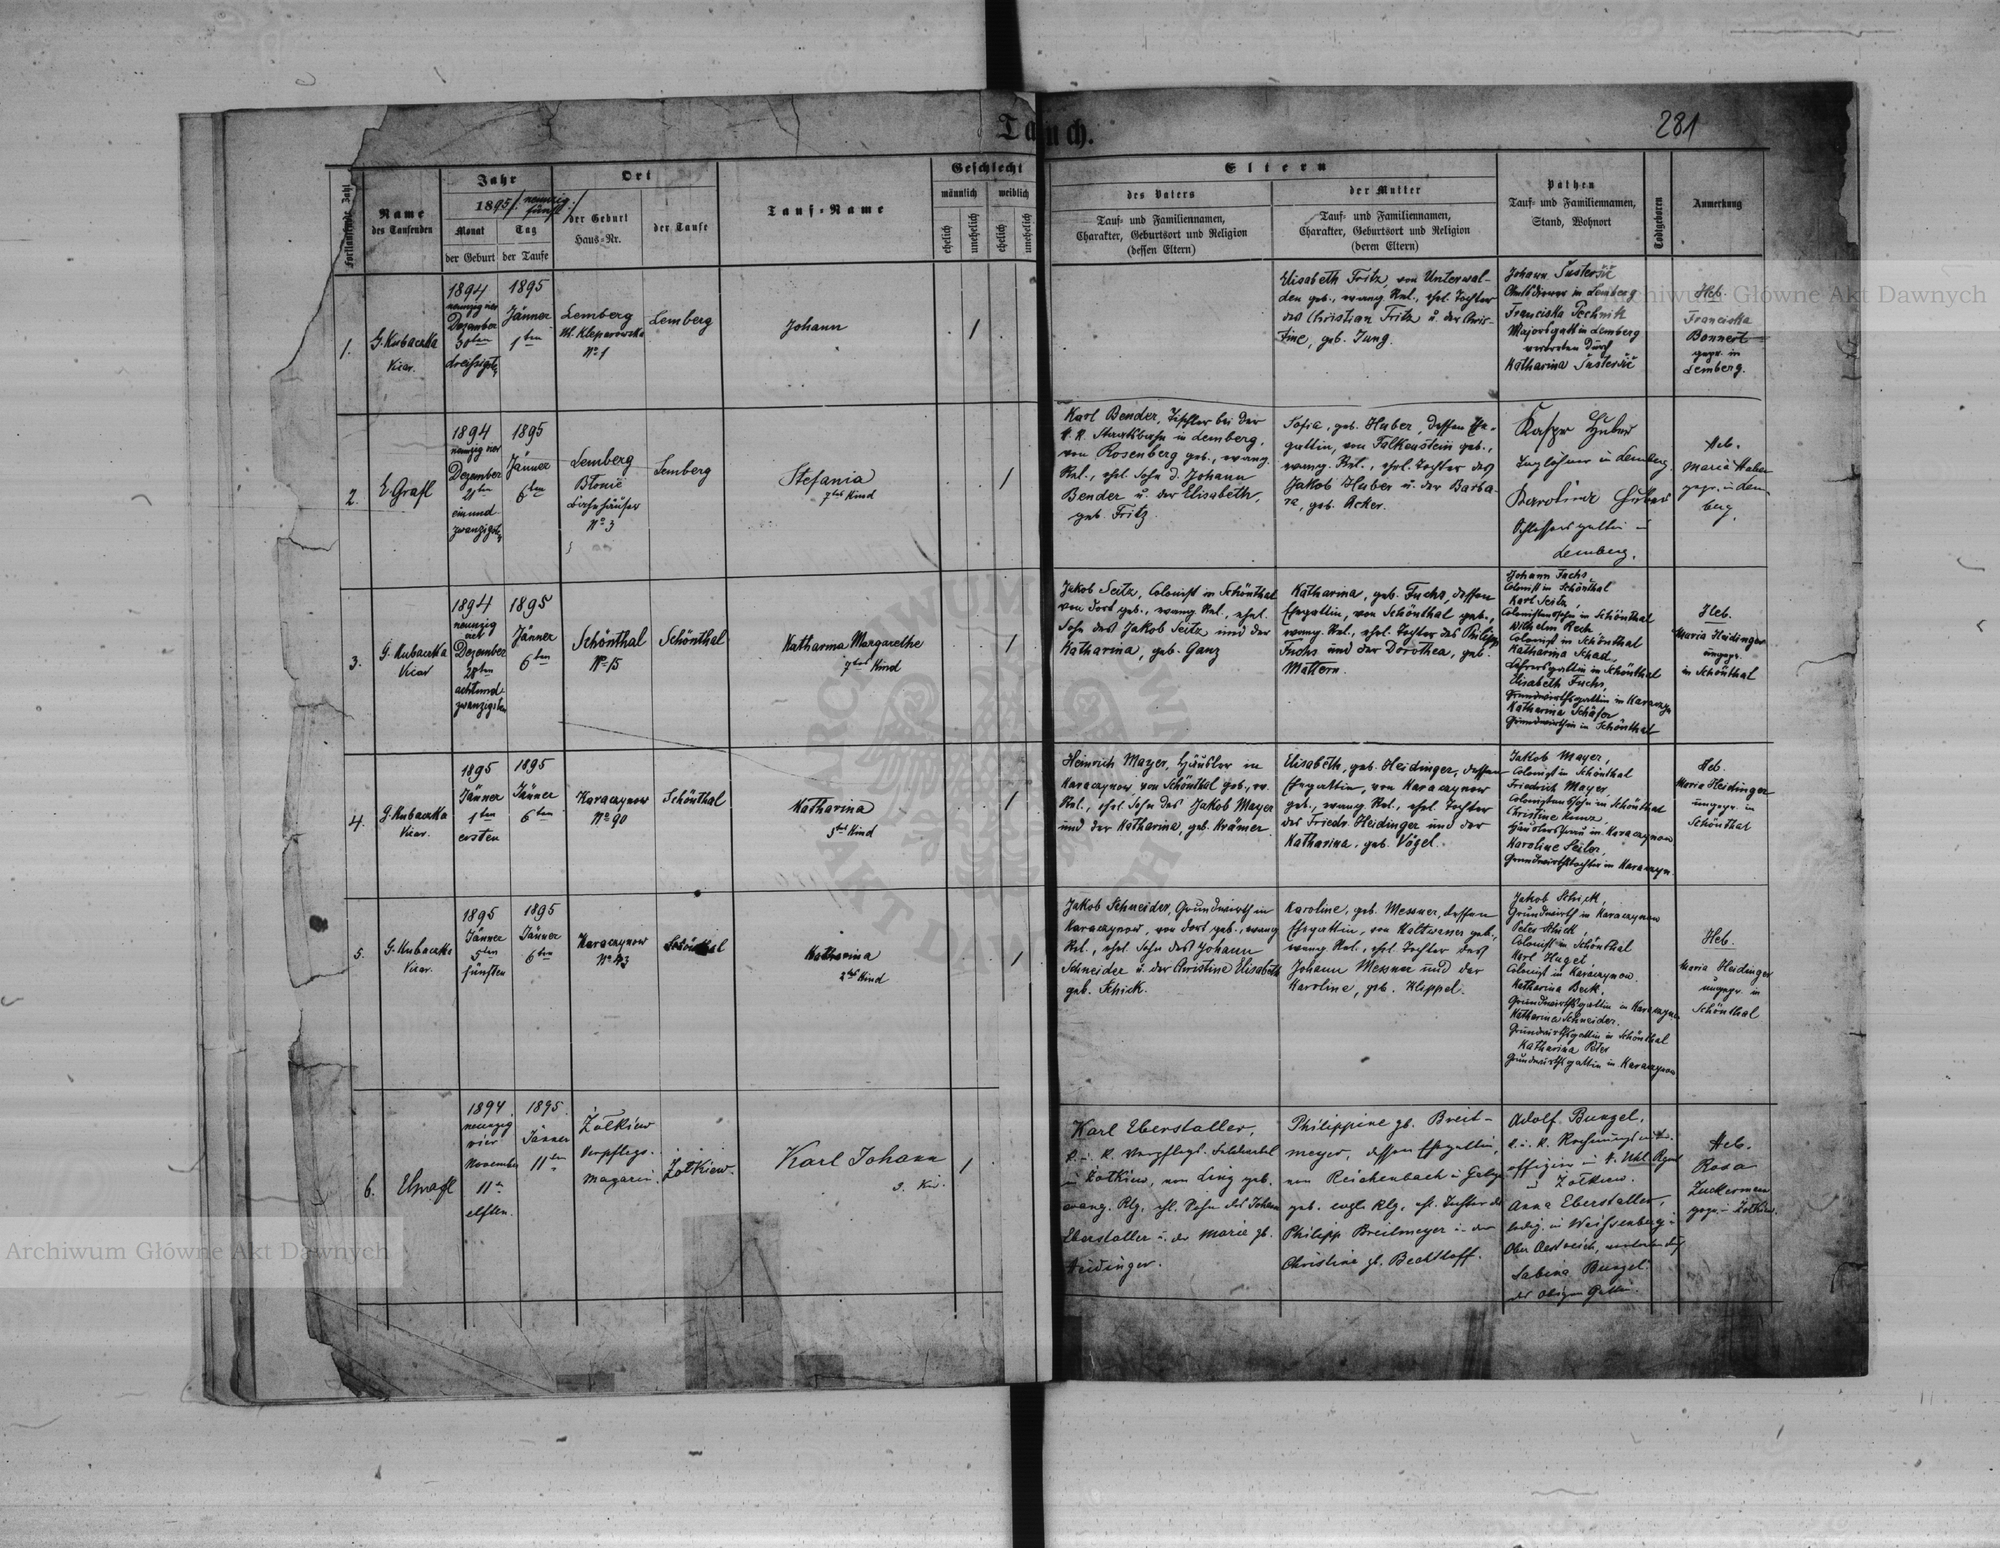 Tauch.
281
Fortlaufende Zahl
Name
des Taufenden
Jahr
1895/ neunzig
fünf/
Monat
der Geburt
Tag
der Taufe
Ort
der Geburt
Haus=Nr.
der Taufe
Tauf=Name
Geschlecht
männlich
weiblich
ehelich
unehelich
ehelich
unehelich
Eltern
des Vaters
Tauf= und Familiennamen,
Charakter, Geburtsort und Religion
(dessen Eltern)
der Mutter
Tauf= und Familiennamen,
Charakter, Geburtsort und Religion
(deren Eltern)
Pathen
Tauf= und Familiennamen,
Stand, Wohnort
Todtgeboren
Anmerkung
1.
G. Kubaczka
Vicar.
1894
neunzig vier
Dezember
30ten
dreissigsten
1895
Jänner
1ten
Lemberg
Kleparowska
No 1
Lemberg
Johann
/
Elisabeth Fritz, von Unterwal-
den geb., evang. Rel., ehel. Tochter
des Christian Fritz u. der Chris-
tine, geb. Jung.
Johann Šusteršić
Amtsdiener in Lemberg
Franciska Pechnik
Majorsgattin Lemberg
vertreten durch
Katharina Šusteršić
Heb.
Franciska
Bonnert
gepr. in
Lemberg.
2.
E Grafl
1894
neunzig vier
Dezember
21ten
einund-
zwanzigsten
1895
Jänner
6ten
Lemberg
Błonie
Bahnhäuser
No 3
Lemberg
Stefania
7tes Kind
/
Karl Bender, Tischler bei der
k. k. Staatsbahn in Lemberg,
von Rosenberg geb., evang.
Rel., ehel. Sohn d. Johann
Bender u. der Elisabeth,
geb. Fritz.
Sofie, geb. Huber, dessen Ehe-
gattin, von Falkenstein geb.,
evang. Rel., ehel. Tochter des
Jakob Huber u. der Barba-
ra, geb. Acker.
Kaspar Huber
Taglöhner in Lemberg.
Karolina Huber
Schlossersgattin in
Lemberg.
Heb.
Maria Huber
gepr. in Lem-
berg.
3.
G. Kubaczka
Vicar
1894
neunzig
vier
Dezember
28ten
achtund-
zwanzigsten
1895
Jänner
6ten
Schönthal
No 15
Schönthal
Katharina Margarethe
7tes Kind
/
Jakob Seitz, Colonist in Schönthal
von dort geb., evang. Rel., ehel.
Sohn des Jakob Seitz und der
Katharina, geb. Ganz
Katharina, geb. Fuchs, dessen
Ehegattin, von Schönthal geb.,
evang. Rel., ehel. Tochter des Philipp
Fuchs und der Dorothea, geb.
Mattern.
Johann Fuchs,
Colonist in Schönthal
Karl Seitz,
Colonistensohn in Schönthal
Wilhelm Rech
Colonist in Schönthal
Katharina Schad,
Lehrersgattin in Schönthal
Elisabeth Fuchs,
Grundwirthsgattin in Karaczyn
Katharina Schäfer
Grundwirthin in Schönthal
Heb.
Maria Heidinger
ungepr.
in Schönthal
4.
G. Kubaczka
Vicar.
1895
Jänner
1ten
ersten
1895
Jänner
6ten
Karaczynow
No 90
Schönthal
Katharina
5tes Kind
/
Heinrich Mayer, Häusler in
Karaczynow, von Schönthal geb., ev.
Rel., ehel. Sohn des Jakob Mayer
und der Katharina, geb. Krämer.
Elisabeth, geb. Heidinger, dessen
Ehegattin, von Karaczynow
geb., evang. Rel., ehel. Tochter
des Friedr. Heidinger und der
Katharina, geb. Vögel.
Jakob Mayer,
Colonist in Schönthal
Friedrich Mayer,
Colonistensohn in Schönthal
Christine Kunz,
Häuslersfrau in Karaczynow
Karoline Seiler,
Grundwirthstochter in Karaczyn.
Heb.
Maria Heidinger
ungepr. in
Schönthal
5.
G. Kubaczka
Vicar.
1895
Jänner
5ten
fünften
1895
Jänner
6ten
Karaczynow
No 43
Schönthal
Katharina
2tes Kind
/
Jakob Schneider, Grundwirth in
Karaczynow, von dort geb., evang.
Rel., ehel. Sohn des Johann
Schneider u. der Christine Elisabeth
geb. Schick.
Karoline, geb. Messner, dessen
Ehegattin, von Kaltwasser geb.,
evang. Rel., ehel. Tochter des
Johann Messner und der
Karoline, geb. Klippel.
Jakob Schick,
Grundwirth in Karaczynow
Peter Schick,
Colonist in Schönthal
Karl Hagel,
Colonist in Karaczynow.
Katharina Beck,
Grundwirthsgattin in Karaczynow
Katharina Schneider.
Grundwirthsgattin in Schönthal
Katharina Peter
Grundwirthsgattin in Karaczynow
Heb.
Maria Heidinger
ungepr. in
Schönthal
6.
EGrafl
1894
neunzig
vier
November
11ten
elften.
1895.
Jänner
11ten
Żołkiew
Verpflegs-
magazin.
Żołkiew.
Karl Johann
3. Kind.
/
Karl Eberstaller,
k. u. k. Verpflegs-
in Żołkiew, von Linz geb.
evang. Rlg., ehl. Sohn des Johann
Eberstaller u. der Marie gb.
Heidinger.
Philippine gb. Breit-
meyer, dessen Ehegattin,
von Reichenbach in Galiz.
geb. evgl. Rlg, ehl. Tochter des
Philipp Breitmeyer u. der
Christine gb. Bechtloff.
Adolf Bunzel,
k. u. k. Rechnungsunter-
offizier in 4. Uhl. Rgmt
in Żołkiew.
Anna Eberstaller,
ledig, in Weissenberg in
Ober Oestreich, vertreten durch
Sabina Bunzel
des obigen Gattin.
Heb.
Rosa
Zuckerman
gepr. in Żołkiew.
Archiwum Główne Akt Dawnych
Archiwum Główne Akt Dawnych
ARCHIWUM GŁÓWNE AKT DAWNYCH